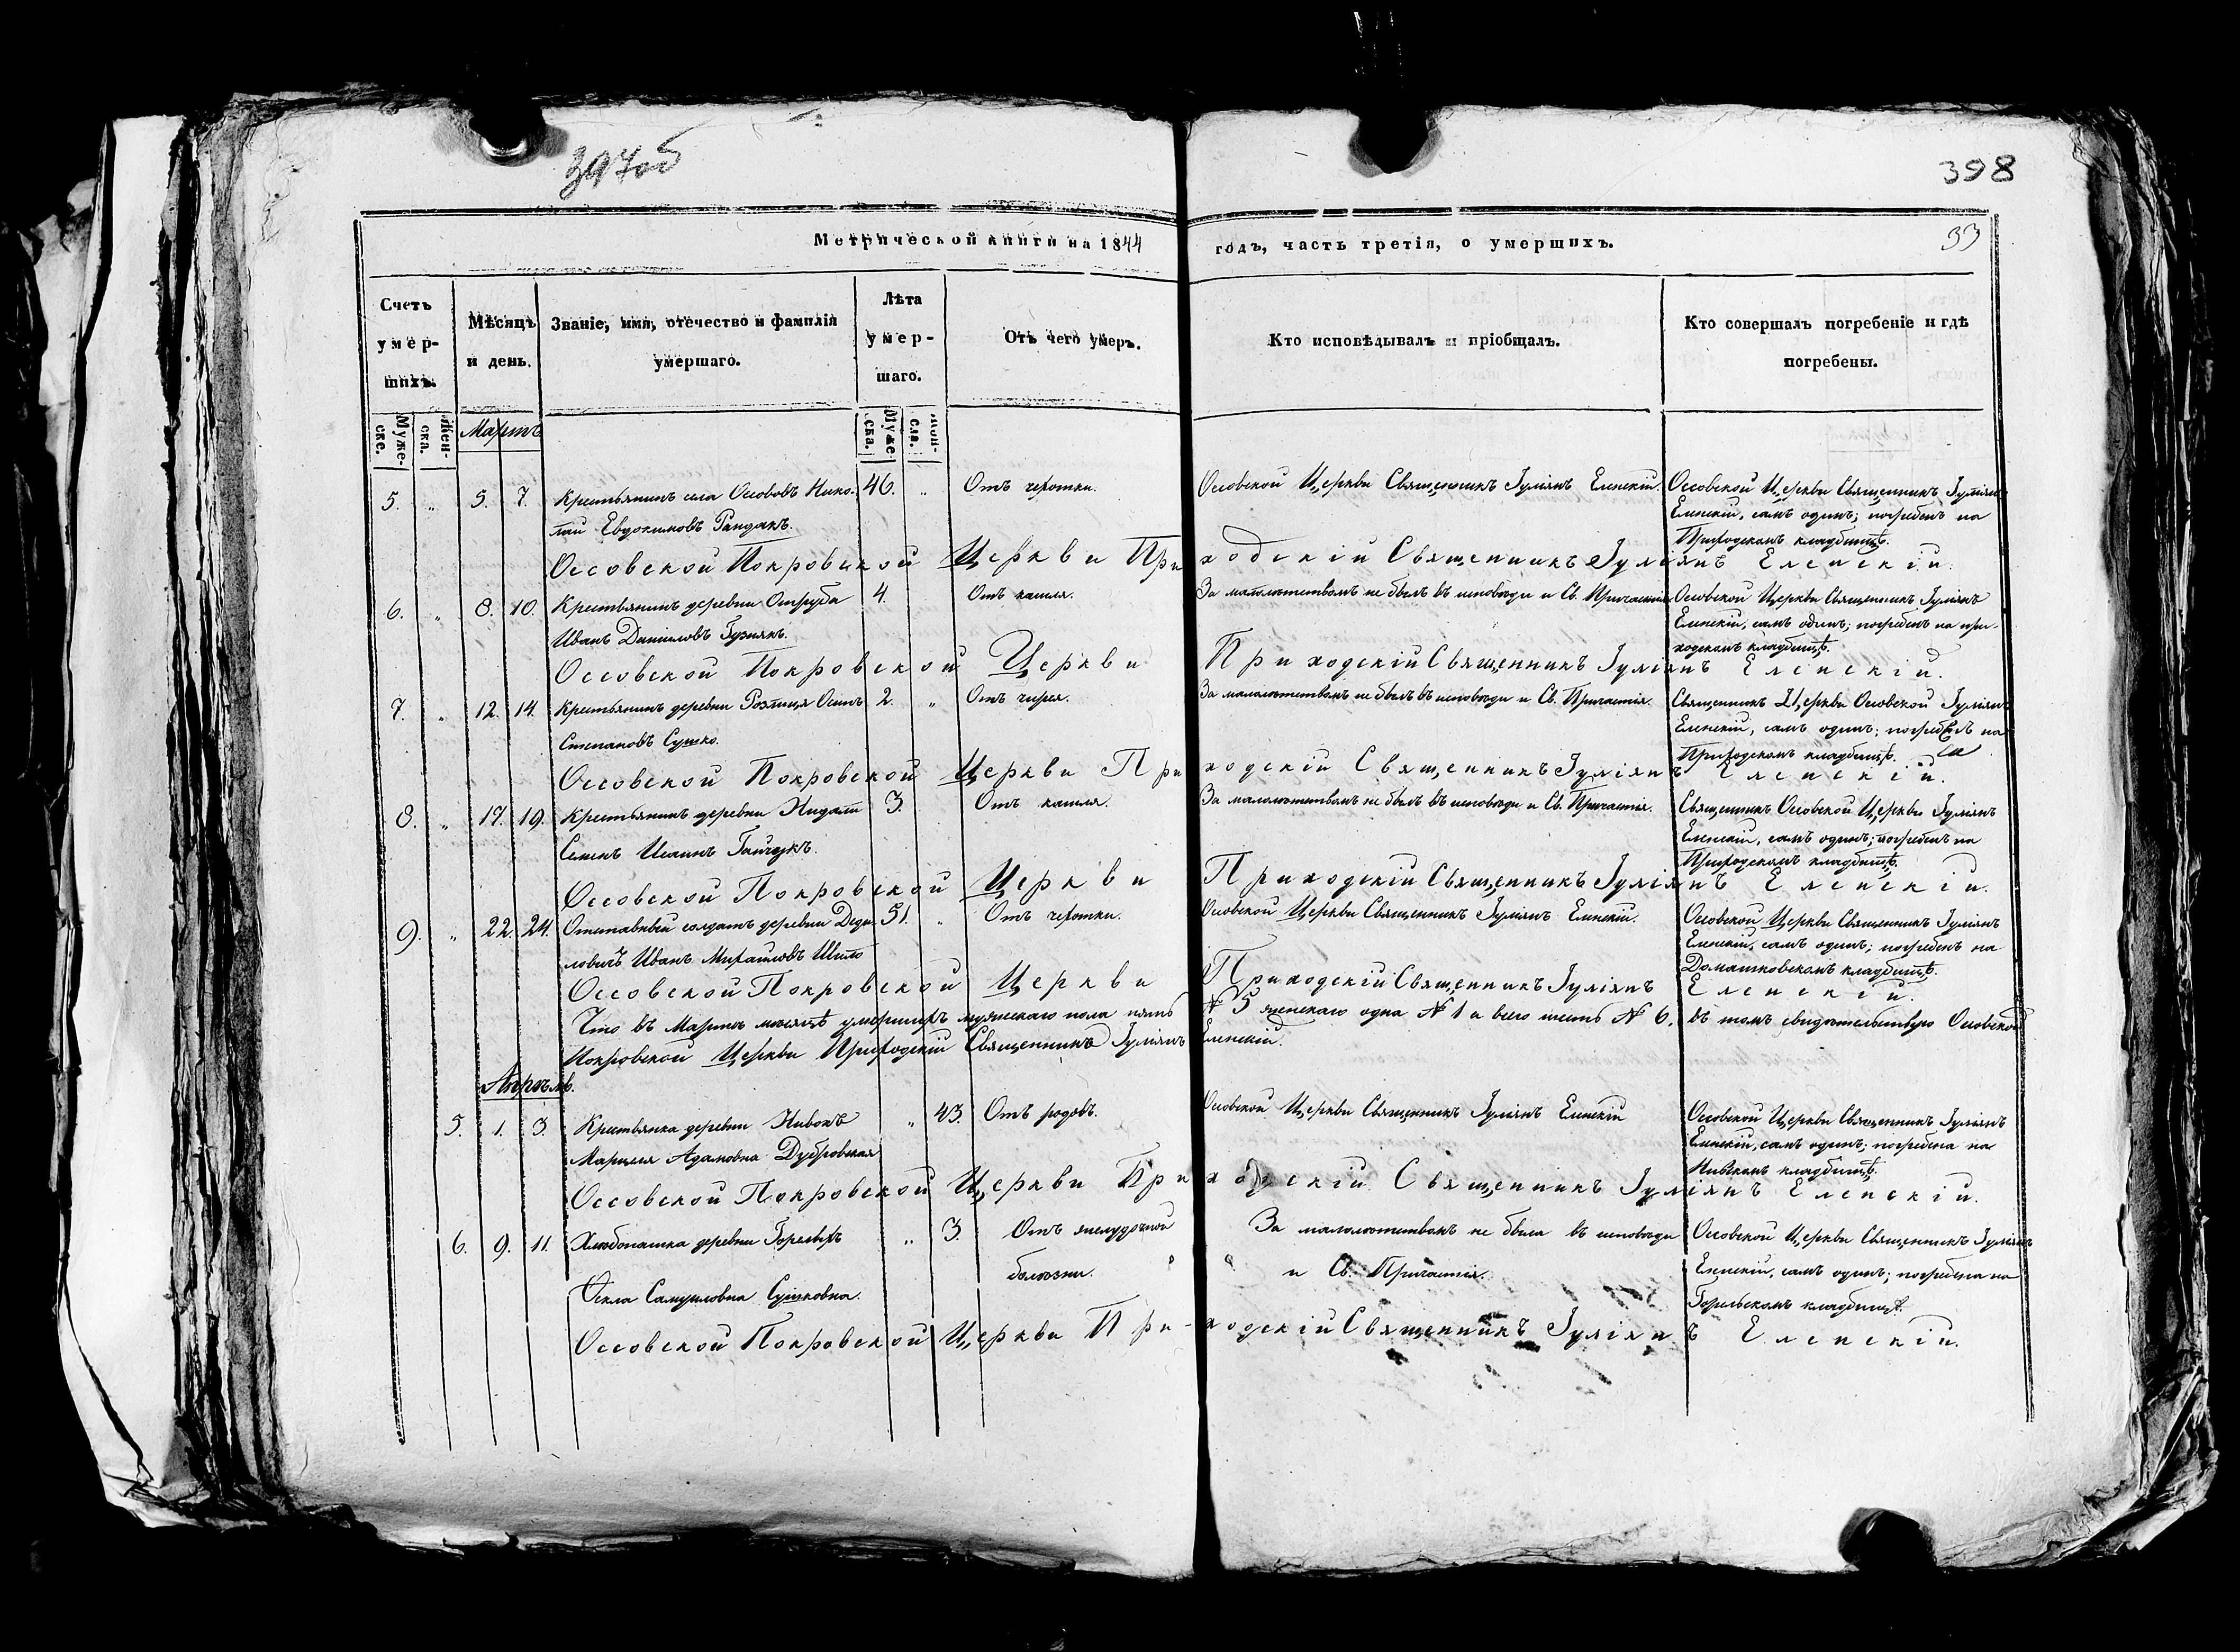 397об
398
33
Метрической книги на 1844 годъ, часть третія, о умершихъ.
Счетъ умер-шихъ.
Мѣсяцъ и день.
Званіе, имя, отечество и фамилія умершаго.
Лѣта умер-шаго.
Отъ чего умеръ.
Кто исповѣдывалъ и пріобщалъ.
Кто совершалъ погребеніе и гдѣ погребены.
Муже-ска.
Жен-ска.
Мартъ
Муже-ска.
Жен-ска.
5. „ 5. 7. Крестьянинъ села Оссовъ Нико- 46. „ Отъ чехотки. Оссовской Церкви Священникъ Іуліянъ Еленскій. Оссовской Церкви Священникъ Іуліянъ
лай Евдокимовъ Еленскій, самъ одинъ; погребенъ на
Приходскомъ кладбищѣ.
Оссовской Покровской Церкви Приходскій Священникъ Іуліянъ Еленскій.
6. „ 8. 10. Крестьянинъ деревни 4. Отъ кашля. За малолѣтствомъ не былъ въ исповѣди и Св. Причастія. Оссовской Церкви Священникъ Іуліянъ
Иванъ Даниловъ Еленскій, самъ одинъ; погребенъ на при-
ходскомъ кладбищѣ.
Оссовской Покровской Церкви Приходскій Священникъ Іуліянъ Еленскій.
7. „ 12. 14. Крестьянинъ деревни Осипъ 2. „ Отъ чирея. За малолѣтствомъ не былъ въ исповѣди и Св. Причастія. Священникъ Церкви Оссовской Іуліянъ
Степановъ Сушко. Еленскій, самъ одинъ; погребенъ на
Приходскомъ кладбищѣ.
Оссовской Покровской Церкви Приходскій Священникъ Іуліянъ Еленскій.
8. „ 17. 19. Крестьянинъ деревни 3. Отъ кашля. За малолѣтствомъ не былъ въ исповѣди и Св. Причастія. Священникъ Оссовской Церкви Іуліянъ
Семенъ Гайчукъ. Еленскій, самъ одинъ; погребенъ на
Приходскомъ кладбищѣ.
Оссовской Покровской Церкви Приходскій Священникъ Іуліянъ Еленскій.
9. „ 22. 24. Отставный солдатъ деревни Деди- 51. „ Отъ чехотки. Оссовской Церкви Священникъ Іуліянъ Еленскій. Оссовской Церкви Священникъ Іуліянъ
ловичъ Иванъ Михайловъ Шило Еленскій, самъ одинъ; погребенъ на
Домашковскомъ кладбищѣ.
Оссовской Покровской Церкви Приходскій Священникъ Іуліянъ Еленскій.
Что въ Мартѣ мѣсяцѣ умершихъ мужескаго пола пять № 5 женскаго одна № 1 а всего шесть № 6. въ томъ свидѣтельствую Оссовской
Покровской Церкви Приходскій Священникъ Іуліянъ Еленскій.
Апрѣль.
5. 1. 3. Крестьянка деревни Нивокъ „ 43. Отъ родовъ. Оссовской Церкви Священникъ Іуліянъ Еленскій Оссовской Церкви Священникъ Іуліянъ
Марцеля Адамовна Дубровская Еленскій, самъ одинъ; погребена на
кладбищѣ.
Оссовской Покровской Церкви Приходскій Священникъ Іуліянъ Еленскій.
6. 9. 11. Хлѣбопашка деревни „ 3. Отъ желудочной За малолѣтствомъ не была въ исповѣди Оссовской Церкви Священникъ Іуліянъ
болѣзни. и Св. Причастія. Еленскій, самъ одинъ; погребена на
Ѳекла Самуиловна Сушковна. кладбищѣ.
Оссовской Покровской Церкви Приходскій Священникъ Іуліянъ Еленскій.